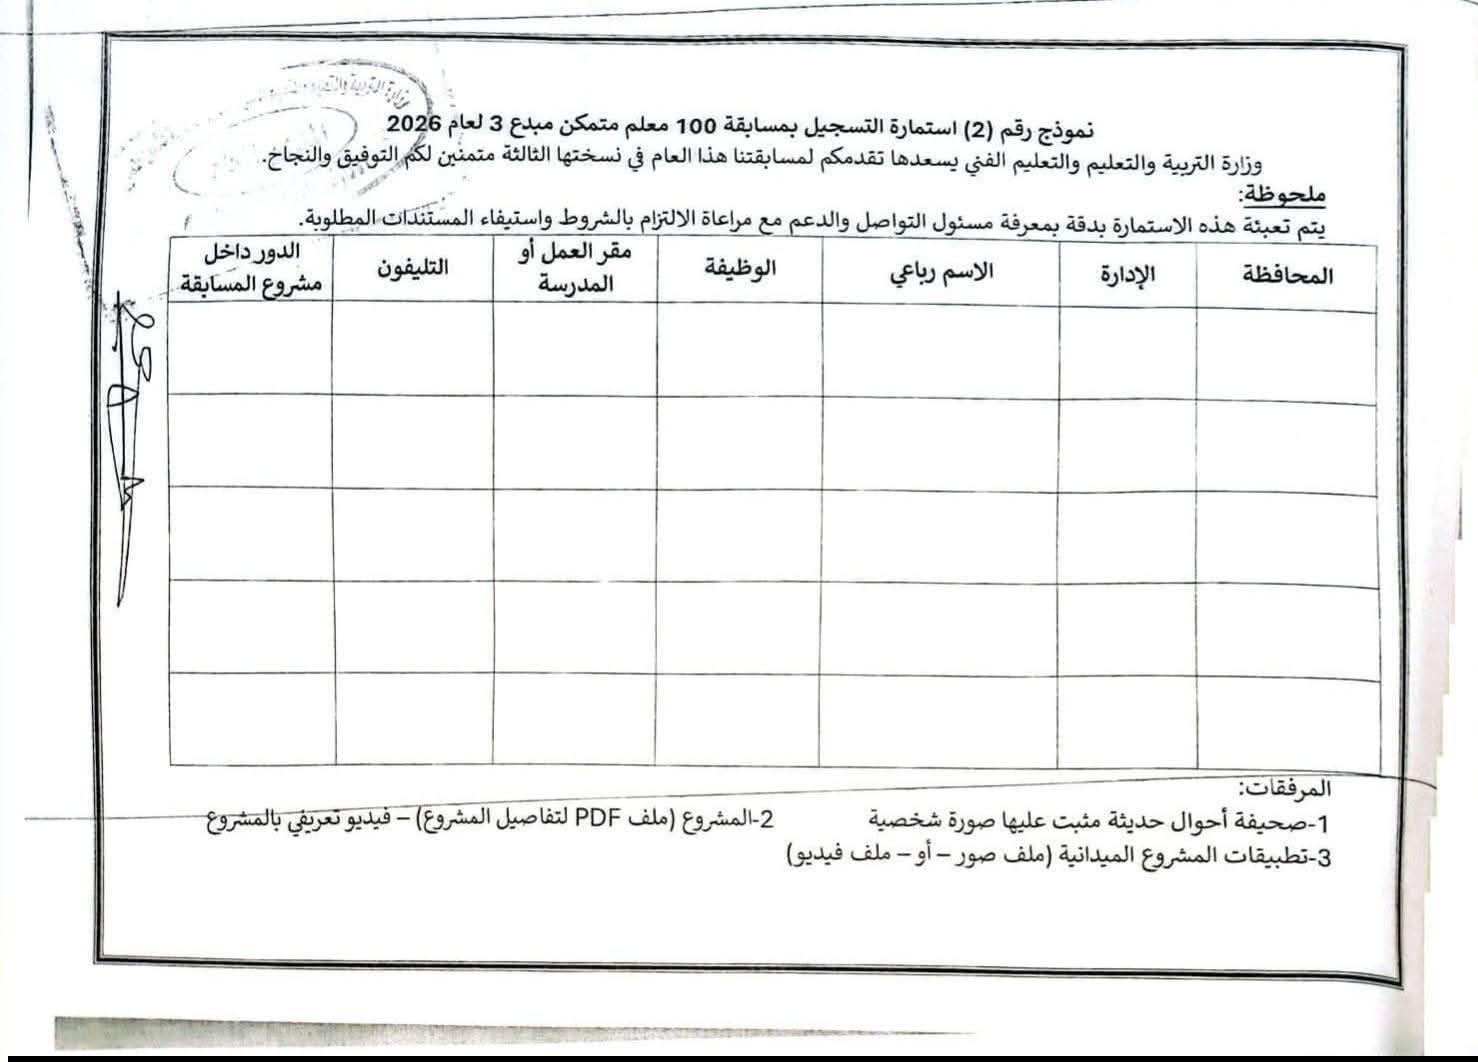 وزارة التربية والتعليم
نموذج رقم (2) استمارة التسجيل بمسابقة 100 معلم متمكن مبدع 3 لعام 2026
وزارة التربية والتعليم والتعليم الفني يسعدها تقدمكم لمسابقتنا هذا العام في نسختها الثالثة متمنين لكم التوفيق والنجاح.
ملحوظة:
يتم تعبئة هذه الاستمارة بدقة بمعرفة مسئول التواصل والدعم مع مراعاة الالتزام بالشروط واستيفاء المستندات المطلوبة.
المحافظة الإدارة الاسم رباعي الوظيفة مقر العمل أو المدرسة التليفون الدور داخل مشروع المسابقة
المرفقات:
1-صحيفة أحوال حديثة مثبت عليها صورة شخصية 2-المشروع (ملف PDF لتفاصيل المشروع) – فيديو تعريفي بالمشروع
3-تطبيقات المشروع الميدانية (ملف صور – أو – ملف فيديو)